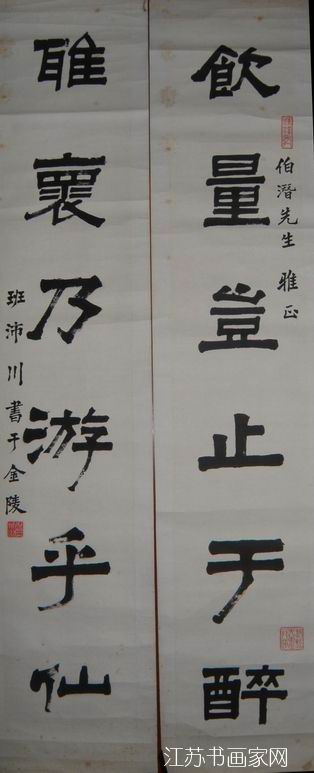 飲量豈止于醉
伯潛先生 雅正
雅褱乃游乎仙
班沛川書于金陵
江苏书画家网